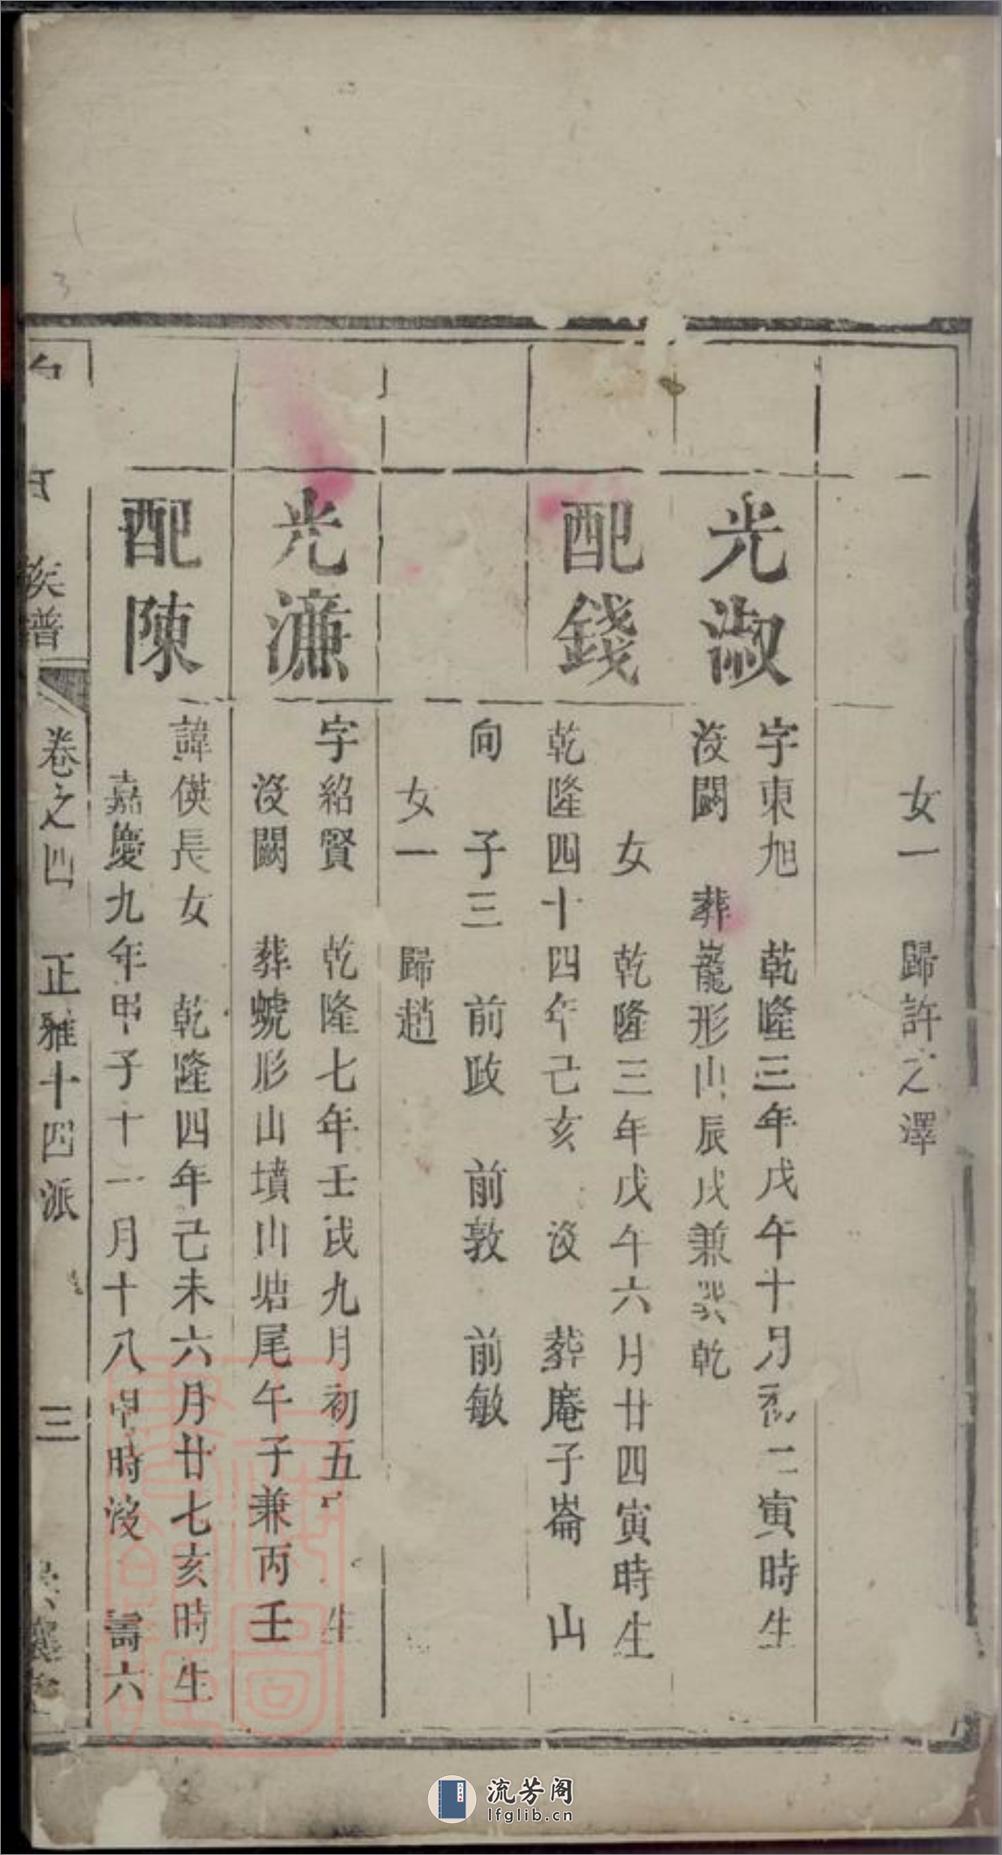 女一　歸許之澤
光淑
字東旭　乾隆三年戊午十月初二寅時生
沒闕　葬巃形山辰戌兼巽乾
配錢
女　乾隆三年戊午六月廿四寅時生
乾隆四十四年己亥　沒　葬庵子崙　山
向　子三　前政　前敦　前敏
女一　歸趙
光濂
字紹賢　乾隆七年壬戌九月初五　生
沒闕　葬虩形山墳山塘尾午子兼丙壬
配陳
諱偀長女　乾隆四年己未六月廿七亥時生
嘉慶九年甲子十一月十八申時沒　壽六
族譜
卷之四　正雅十四派　三
流芳阁
lfglib.cn